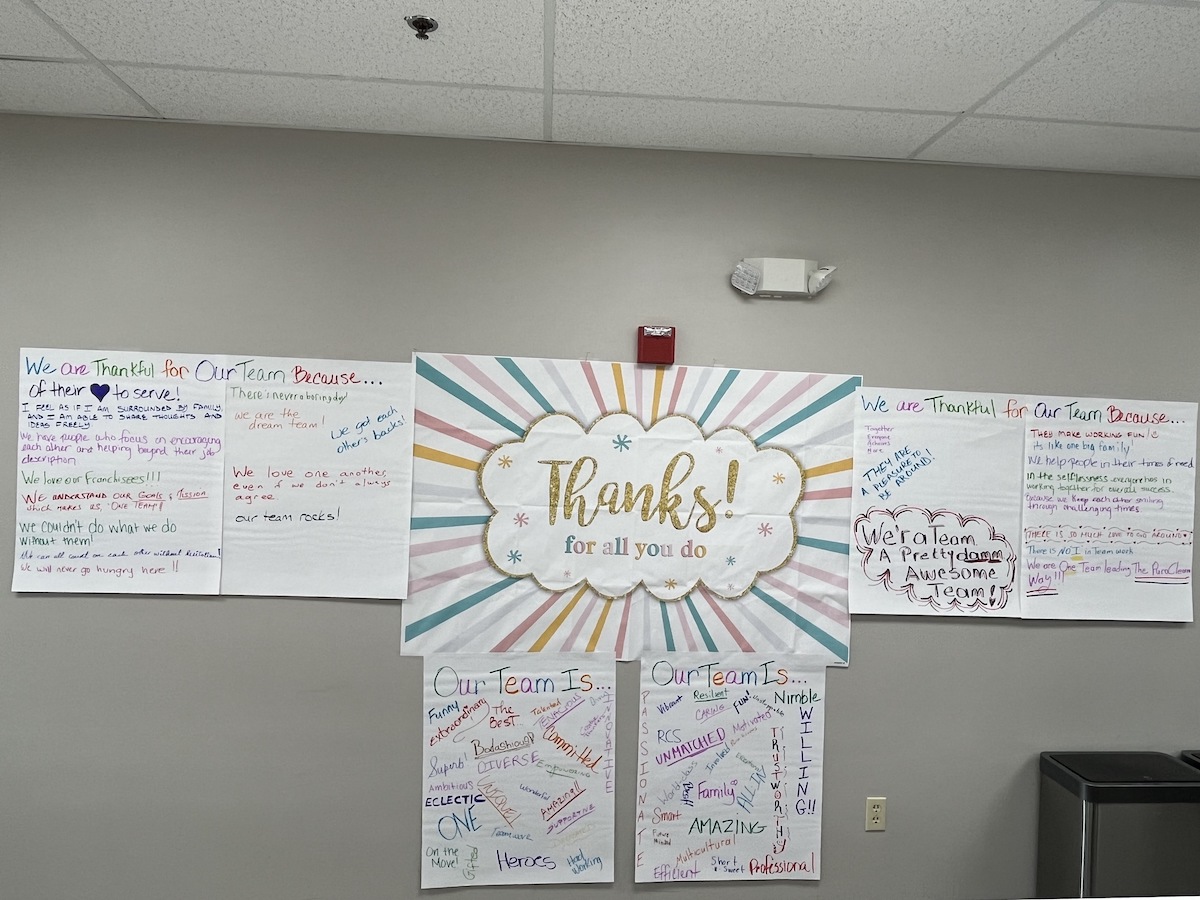 We are Thankful for Our Team Because...
of their ♥ to serve!
I FEEL AS IF I AM SURROUNDED BY FAMILY,
AND I AM ABLE TO SHARE THOUGHTS AND
IDEAS FREELY
We have people who focus on encouraging
each other and helping beyond their job
description
We love our Franchisees!!!
WE UNDERSTAND OUR GOALS & MISSION
which makes us, "ONE TEAM"!
We couldn't do what we do
without them!
We can all count on each other without hesitation!
We will never go hungry here!!
There's never a boring day!
we are the
dream team!
We got each
other's backs!
We love one another
even if we don't always
agree.
our team rocks!
Thanks!
for all you do
We are Thankful for Our Team Because...
Together
Everyone
Achieves
More
THEY ARE
A PLEASURE TO
BE AROUND!
We'r a Team
A Pretty damm
Awesome
Team!
THEY MAKE WORKING FUN!
its like one big family!
We help people in their times of need
in the selflessness everyone has in
working together for overall success.
because we keep each other smiling
through challenging times
THERE IS SO MUCH LOVE TO GO AROUND
There is NO I in Team work
We are One Team leading The PuroClean
Way!!!
Our Team Is...
Funny
extraordinary
The
BEST
Talented
TENACIOUS
INNOVATIVE
Badashious
Committed
Superb!
DIVERSE
Empowering
Ambitious
ECLECTIC
Wonderful
AMAZING!!
SUPPORTIVE
ONE
Teamwork
On the
Move!
Gifted
Heroes
Hard
Working
Our Team Is...
PASSIONATE
Vibrant
Resilient
CARING
FUN!
Nimble
WILLING!!
RCS
UNMATCHED
Motivated
TRUSTWORTHY
Involved
World-class
Best
Family
ALL IN
Smart
AMAZING
Future
Minded
Multicultural
Efficient
Short
& Sweet
Professional